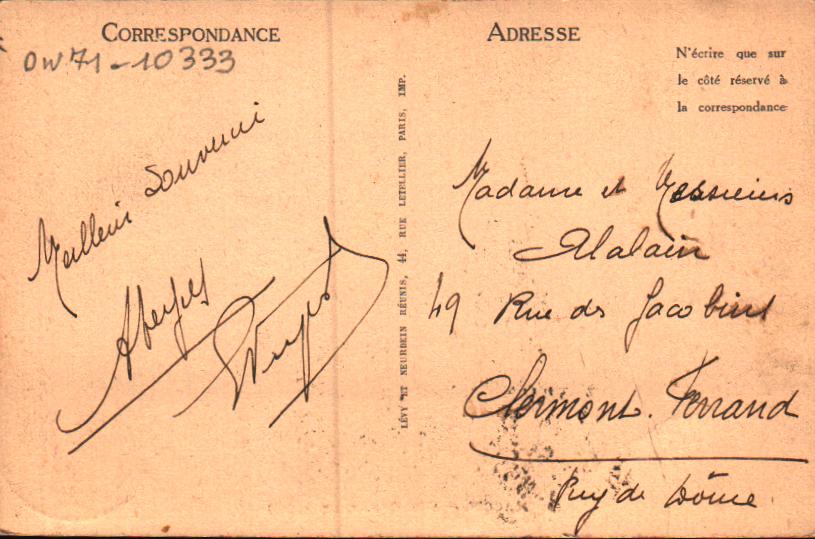 CORRESPONDANCE
OW71-10333
Meilleur Souvenir
ADRESSE
N'écrire que sur
le côté réservé à
la correspondance
LÉVY ET NEURDEIN RÉUNIS, 44, RUE LETELLIER, PARIS, IMP.
Madame et Messieurs
Alalain
49 Rue des Jacobins
Clermont-Ferrand
Puy de Dôme